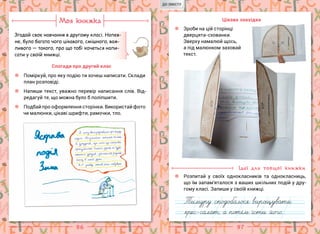 ДО ЗМІСТУ
Моя книжка
Згадай своє навчання в другому класі. Напев-
не, було багато чого цікавого, смішного, важ-
ливого — такого, про що тобі хочеться напи-
сати у своїй книжці.
Спогади про другий клас
Поміркуй, про яку подію ти хочеш написати. Склади
план розповіді.
Напиши текст, уважно перевір написання слів. Від-
редагуй те, що можна було б поліпшити.
Подбай про оформлення сторінки. Використай фото
чи малюнки, цікаві шрифти, рамочки, тло.
Яскрава
подія
Зима
86
Цікава знахідка
Зроби на цій сторінці
дверцята-схованки.
Зверху намалюй щось,
а під малюнком заховай
текст.
Ідеї для товщої книжки
Розпитай у своїх однокласників та однокласниць,
що їм запам'яталося з ваших шкільних подій у дру-
гому класі. Запиши у своїй книжці.
Тимуру сподобалося вирощувати
крес-салат, а потім їсти його.
87